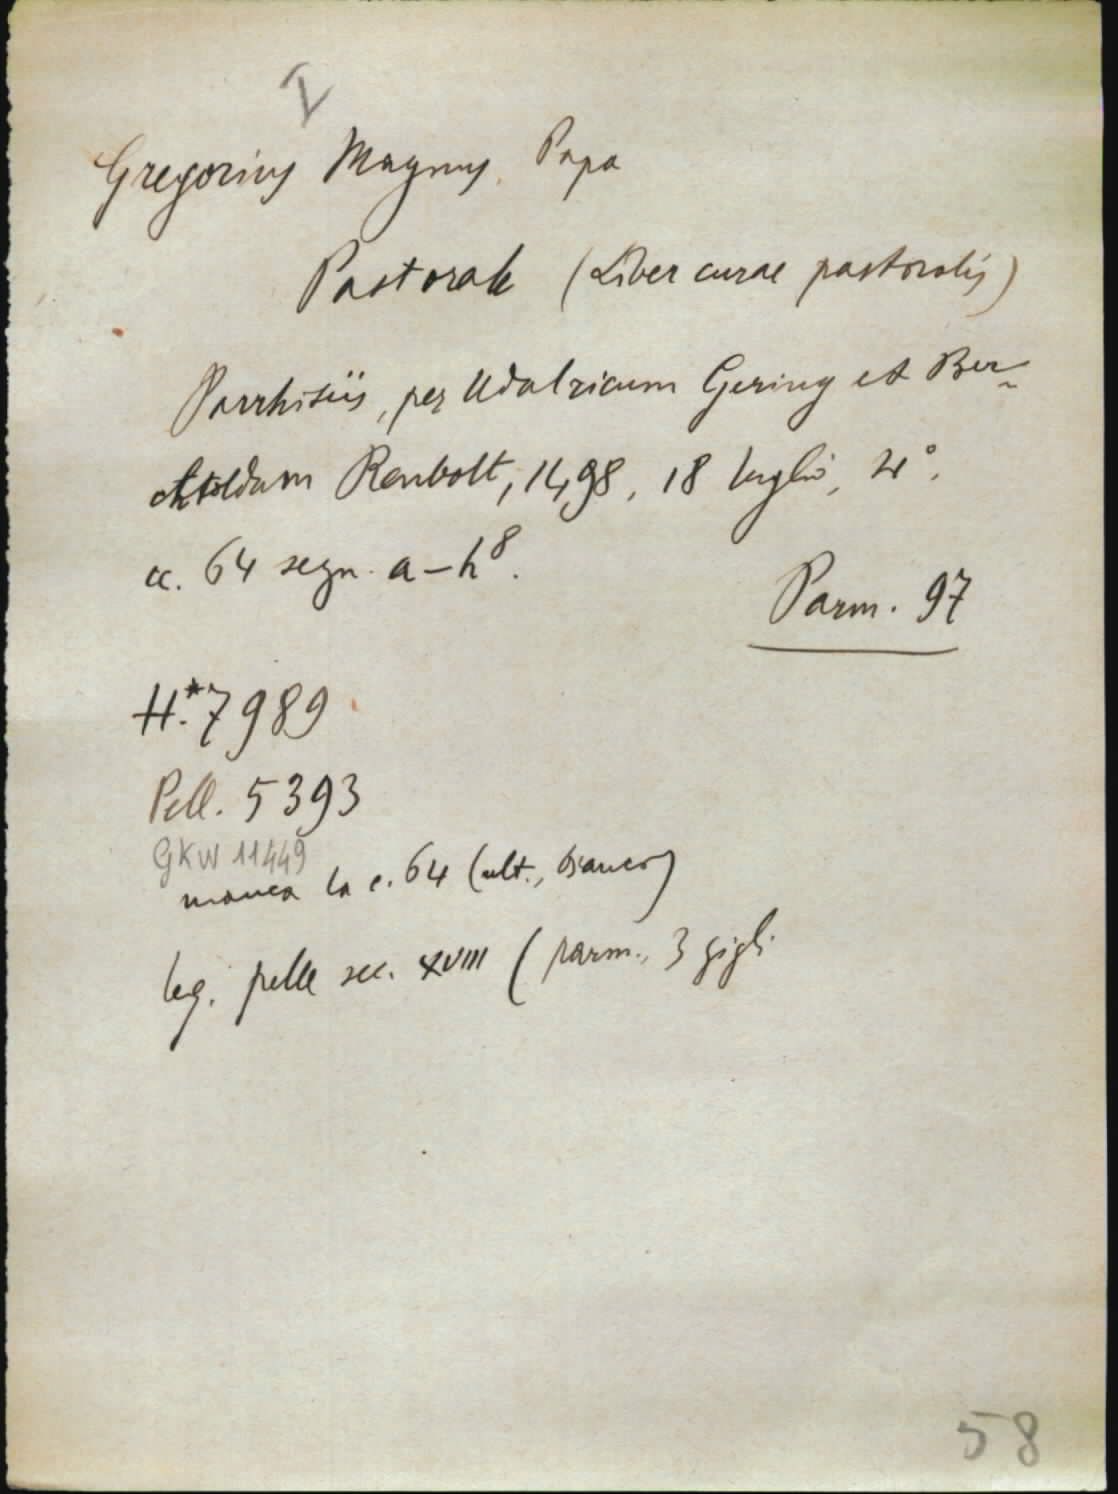 I
Gregorius Magnus, Papa
Pastorale (Liber curae pastoralis)
Parrhisiis, per Udalricum Gering et Ber-
chtoldum Renbolt, 1498, 18 luglio, 4°.
cc. 64 segn. a-h⁸.
Parm. 97
H.*7989
Pell. 5393
GKW 11449
manca la c. 64 (ult., bianca)
leg. pelle sec. XVIII (parm., 3 gigli
58